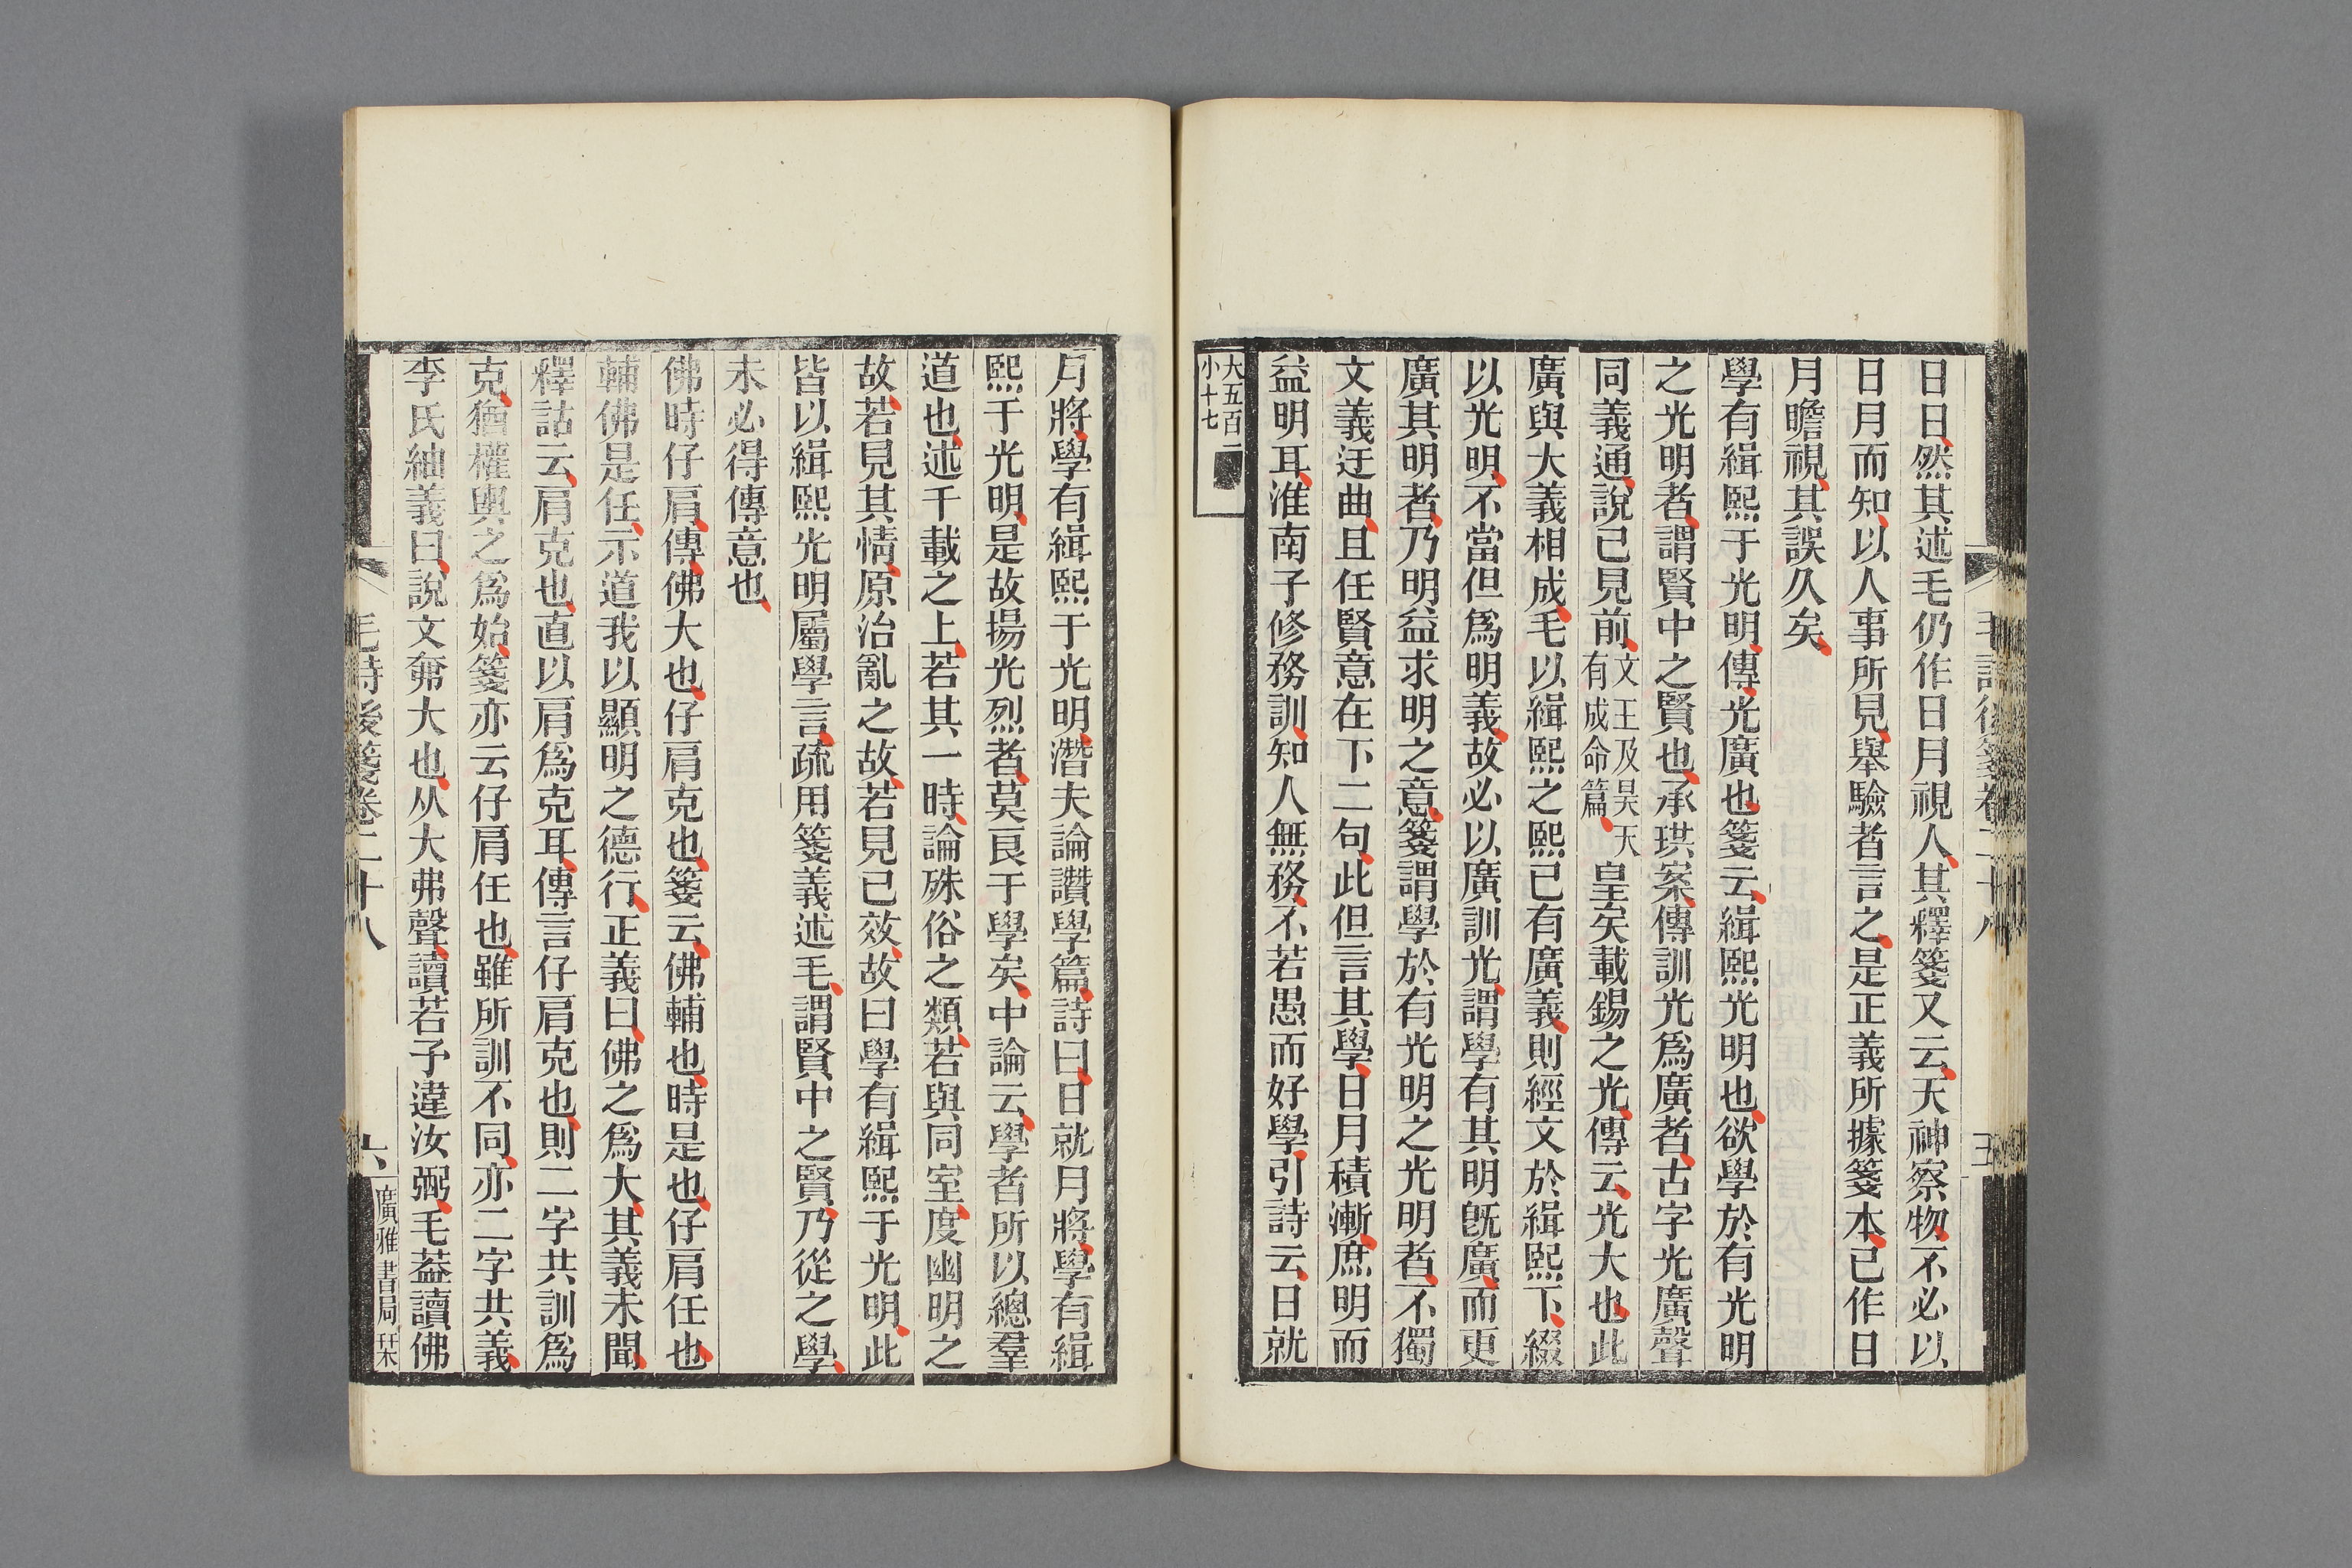 毛詩後箋卷二十八
五
日日然其述毛仍作日月視人其釋箋又云天神察物不必以
日月而知以人事所見舉驗者言之是正義所據箋本已作日
月瞻視其誤久矣
學有緝熙于光明傳光廣也箋云緝熙光明也欲學於有光明
之光明者謂賢中之賢也承珙案傳訓光爲廣者古字光廣聲
同義通說已見前文王及昊天有成命篇皇矣載錫之光傳云光大也此
廣與大義相成毛以緝熙之熙已有廣義則經文於緝熙下綴
以光明不當但爲明義故必以廣訓光謂學有其明旣廣而更
廣其明者乃明益求明之意箋謂學於有光明之光明者不獨
文義迂曲且任賢意在下二句此但言其學日月積漸庶明而
益明耳淮南子修務訓知人無務不若愚而好學引詩云日就
大五百二
小十七
月將學有緝熙于光明潛夫論讚學篇詩曰日就月將學有緝
熙于光明是故揚光烈者莫良于學矣中論云學者所以總羣
道也述千載之上若其一時論殊俗之類若與同室度幽明之
故若見其情原治亂之故若見已效故曰學有緝熙于光明此
皆以緝熙光明屬學言疏用箋義述毛謂賢中之賢乃從之學
未必得傳意也
佛時仔肩傳佛大也仔肩克也箋云佛輔也時是也仔肩任也
輔佛是任示道我以顯明之德行正義曰佛之爲大其義未聞
釋詁云肩克也直以肩爲克耳傳言仔肩克也則二字共訓爲
克猶權輿之爲始箋亦云仔肩任也雖所訓不同亦二字共義
李氏紬義曰說文奰大也从大弗聲讀若予違汝弼毛葢讀佛
毛詩後箋卷二十八
六
廣雅書局栞